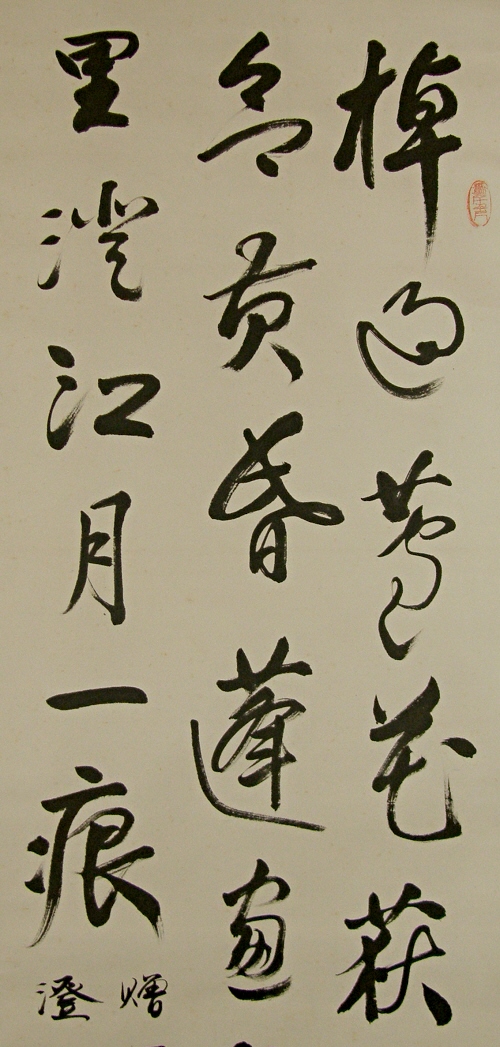 棹過蘆花荻
色黄昏蓬窗
里澄江月一痕
贈
澄